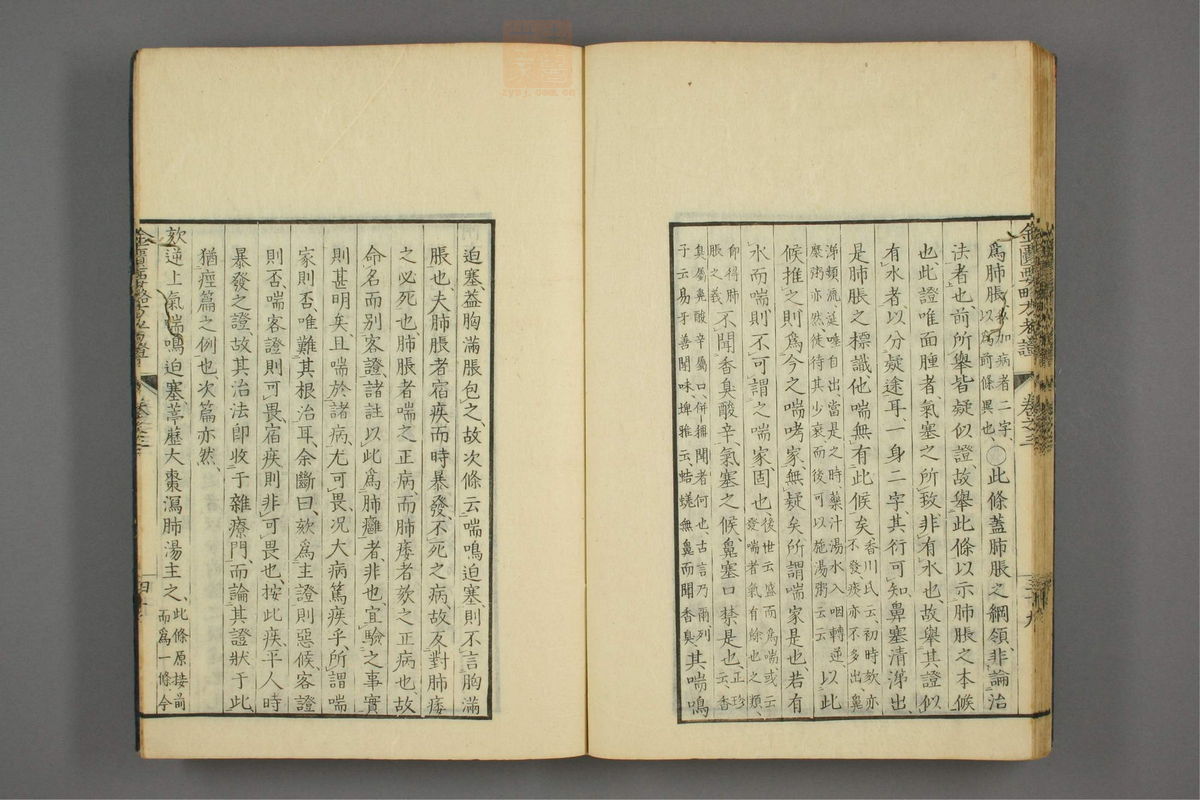 爲肺脹。加病者二字、以爲前條異也、○此條蓋肺脹之綱領、非論治
法者也、前所舉皆疑似證、故舉此條以示肺脹之本候
也、此證唯面腫者、氣塞之所致、非有水也、故與其證似
有水者、以分疑途耳、一身二字、其衍可知、鼻塞清涕出、
是肺脹之標識、他喘無有此候矣、香川氏云、初時欬亦不發、痰亦不多出、鼻
涕頻流、涎唾自出、當是之時、藥汁湯水入咽轉逆、糜粥亦然、徒待其少衰而後可以施湯粥云云、以此
候推之、則爲今之喘哮家、無疑矣、所謂喘家是也、若有
水而喘、則不可謂之喘家、固也、後世云盛而爲喘、或云發喘者氣有餘也之類、
仰得肺脹之義、不聞香臭酸辛、氣塞之候、鼻塞口禁是也、正珍云、香
臭屬鼻、酸辛屬口、併稱聞者何也、古言乃爾、列子云、易牙善聞味、埤雅云、蛞蟻無鼻而聞香臭、其喘鳴
迫塞、葢胸滿脹包之、故次條云喘鳴迫塞、則不言胸滿
脹也、夫肺脹者宿疾而時暴發、不死之病、故反對肺痿
之必死也、肺脹者喘之正病、而肺痿者欬之正病也、故
命名而别客證、諸註以此爲肺癰者非也、宜驗之事實
則甚明矣、且喘於諸病、尤可畏、况大病篤疾乎、所謂喘
家則否、唯難其根治耳、余斷曰、欬爲主證則惡候、客證
則否、喘客證則可畏、宿疾則非可畏也、按此疾、平人時
暴發之證、故其治法即收于雜療門、而論其證狀于此
猶痙篇之例也、次篇亦然、
欬逆上氣、喘鳴迫塞、葶藶大棗瀉肺湯主之、此條原接前而爲一條、今